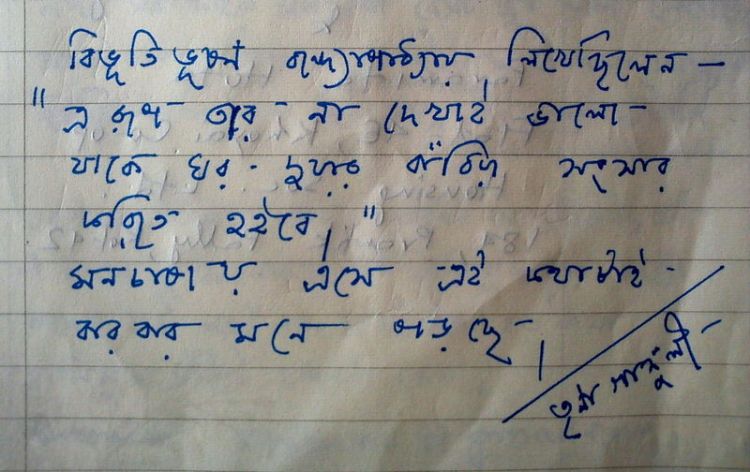 বিভূতি ভূষণ বন্দ্যোপাধ্যায় লিখেছিলেন -
"এ রূপ তার - না দেখাই ভালো -
যাকে ঘর - দুয়ার বাঁধিয়া সংসার
করিতে হইবে।"
মনচাষায় এসে এই কথাটাই -
বারবার মনে পড়ছে - ।
তৃণা গাঙ্গুলী -